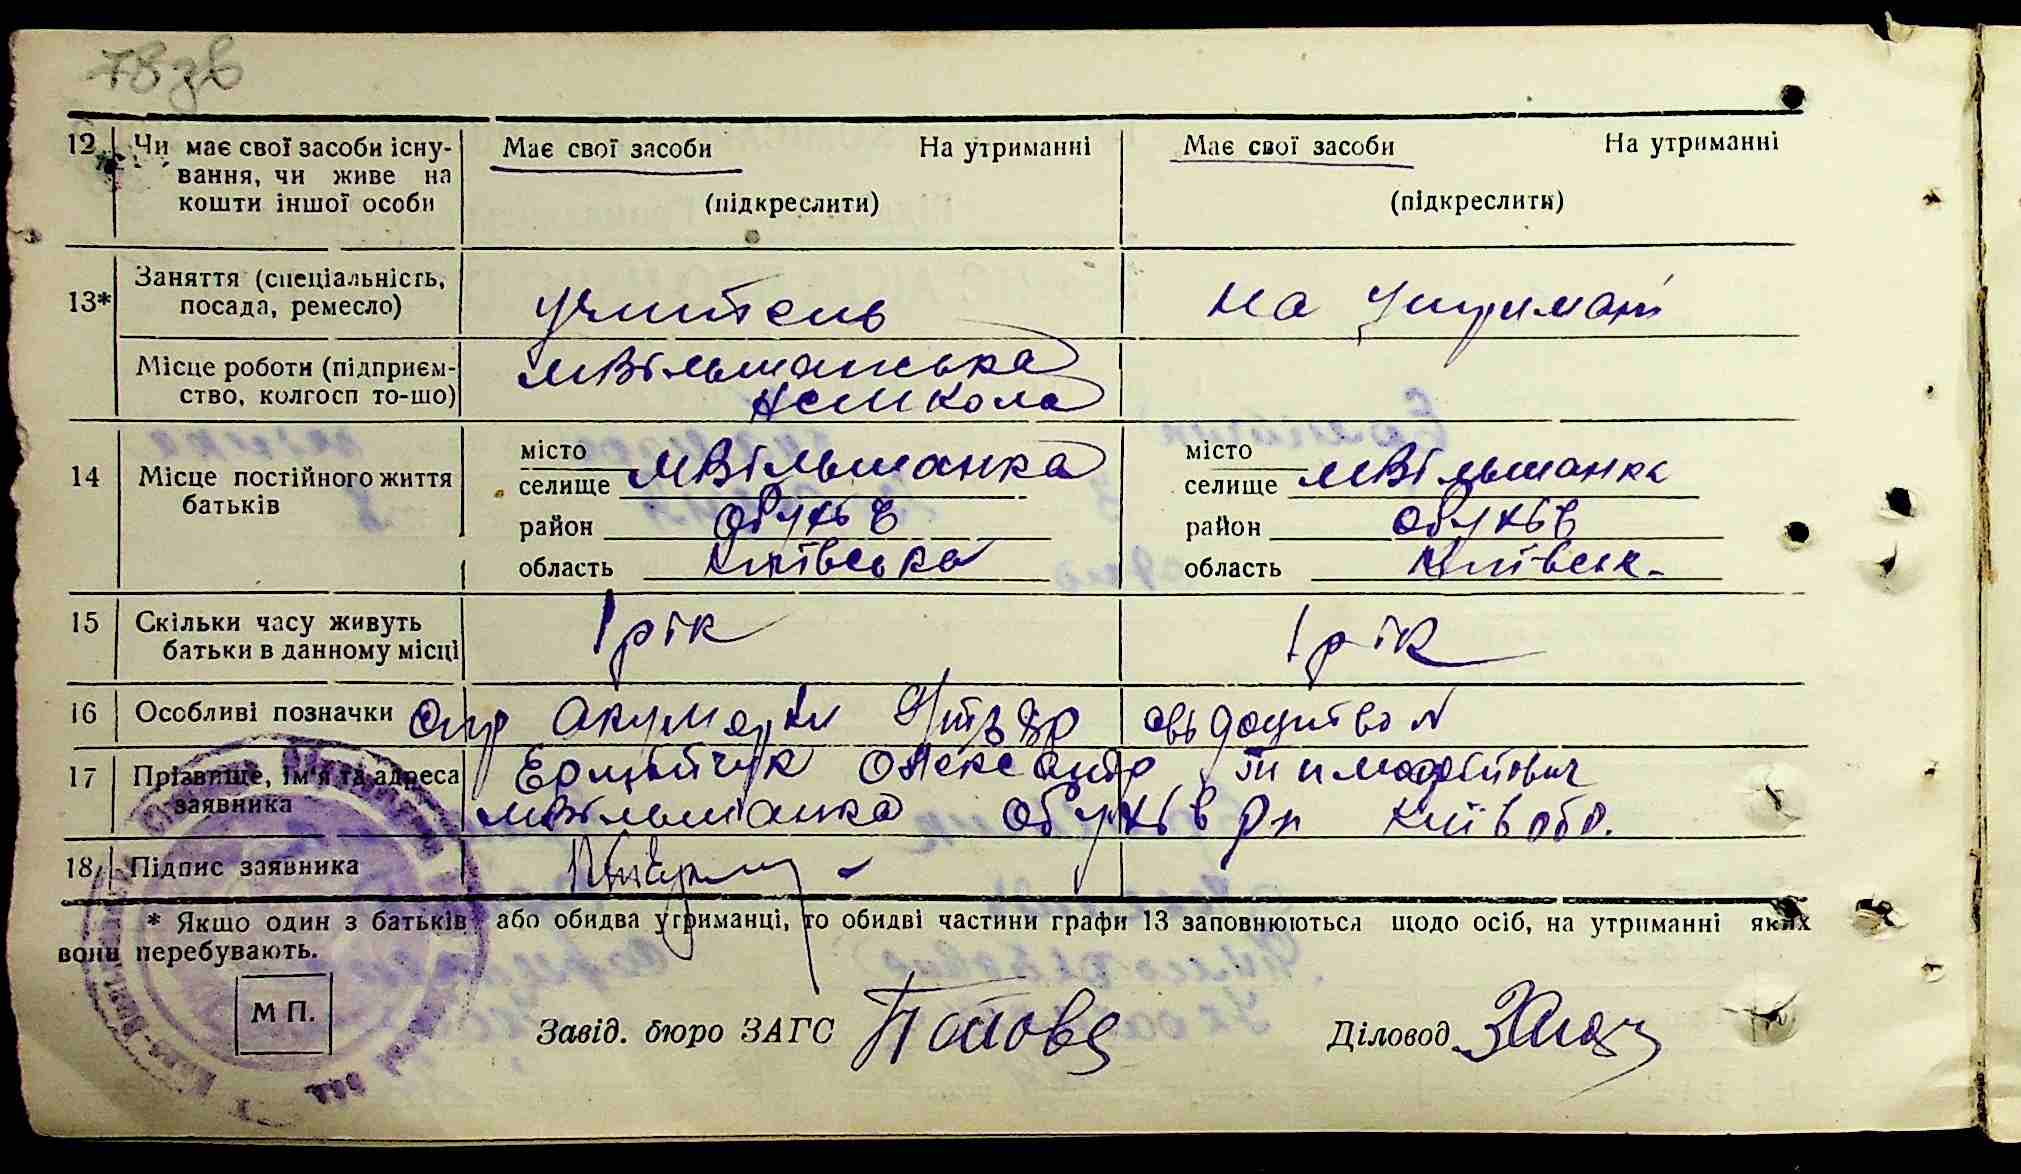 78зв
12 Чи має свої засоби існу- Має свої засоби На утриманні Має свої засоби На утриманні
вання, чи живе на
кошти іншої особи (підкреслити) (підкреслити)
13* Заняття (спеціальність,
посада, ремесло) учитель на утриман
Місце роботи (підприєм- мВільшанська
ство, колгосп то-що) школа
14 Місце постійного життя місто мВільшанка місто мВільшанка
батьків селище селище
район Обухів район Обухів
область Київська область Київськ.
15 Скільки часу живуть 1 рік 1 рік
батьки в данному місці
16 Особливі позначки акушерки
17 Прізвище, ім'я та адреса Олександр Тимофійович
заявника мВільшанка Обухів рн Київ обл.
18 Підпис заявника
* Якщо один з батьків або обидва утриманці, то обидві частини графи 13 заповнюються щодо осіб, на утриманні яких
вони перебувають.
М П.
Завід. бюро ЗАГС Попова Діловод